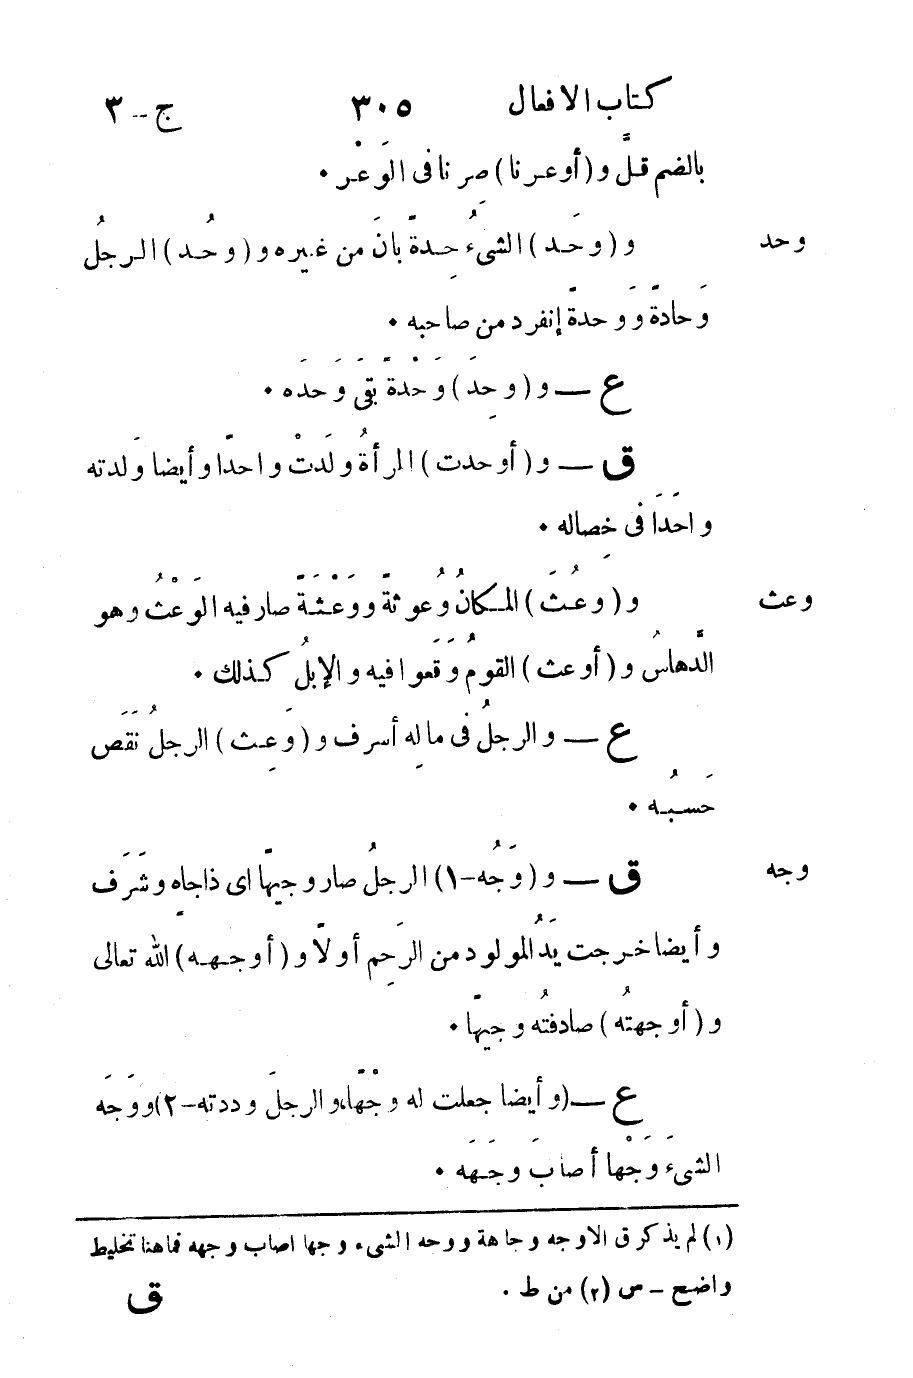 كتاب الافعال ٣٠٥ ج-٣
بالضم قلَّ و (أوعرنا) صِرنا فى الوَعْر ٠
وحد و (وحَد) الشىءُ حِدةً بانَ من غيره و (وحُد) الرجلُ
وَحادةً ووَحدةً إنفرد من صاحبه ٠
ع — و (وحِدَ) وَحْدةً بَقىَ وَحَدَه ٠
ق — و (أوحدت) المرأةُ ولَدتْ واحدًا وأيضا وَلدته
واحَدَا فى خِصاله ٠
وعث و (وعُثَ) المكانُ وُعوثةً ووَعْثَةً صار فيه الوَعْثُ وهو
الدَّهاسُ و (أوعث) القومُ وَقَعوا فيه والإبلُ كذلك ٠
ع — والرجلُ فى مالِه أسرف و (وَعِث) الرجلُ نَقَص
حَسبُه ٠
وجه ق — و (وَجُه-١) الرجلُ صار وجيهًا اى ذاجاهٍ وشَرَف
وأيضا خرجت يَدُ المولود من الرَحِم أولًا و (أوجهه) الله تعالى
و (أوجهتُه) صادفتُه وجيهًا ٠
ع — (وأيضا جعلت له وجْهًا، والرجلَ رددته-٢) ووَجَه
الشىءَ وَجْها أصابَ وجَهَه ٠
(١) لم يذكر ق الاوجه وجاهة ووجه الشىء وجها اصاب وجهه فما هنا تخليط
واضح – س (٢) من ط ٠
ق